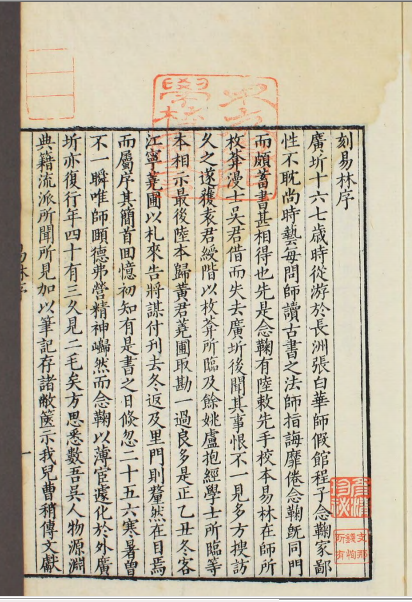 刻易林序
廣圻十六七歲時從游於長洲張白華師假館程子念鞠家鄙
性不耽尚時藝每問師讀古書之法師指誨靡倦念鞠旣同門
而頗蓄書甚相得也先是念鞠有陸敕先手校本易林在師所
枚菴漫士吳君借而失去廣圻後聞其事恨不一見多方搜訪
久之遂獲袁君綬階以枚菴所臨及餘姚盧抱經學士所臨等
本相示最後陸本歸黃君蕘圃取勘一過良多是正乙丑冬客
江寧蕘圃以札來告將謀付刊去冬返及里門則釐然在目焉
而屬序其簡首回憶初知有是書之日倏忽二十五六寒暑曾
不一瞬唯師頤德弗營精神巋然而念鞠以薄宦遽化於外廣
圻亦復行年四十有三久見二毛矣方思悉數吾吳人物源淵
典籍流派所聞所見加以筆記存諸敝篋示我兒曹稍傳文獻
易林序
一